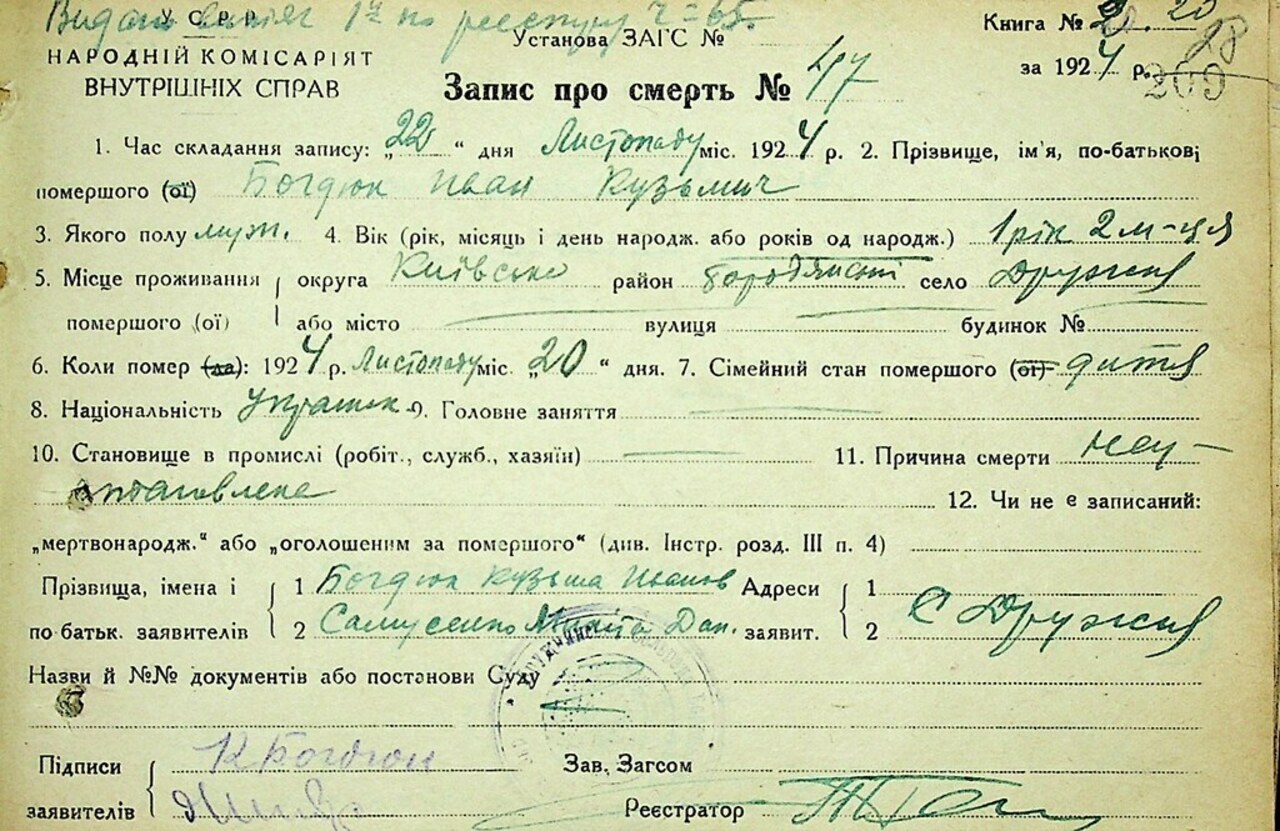 Видано витяг 1й по реєстру ч = 65.
У. С. Р. Р.
НАРОДНІЙ КОМІСАРІЯТ
ВНУТРІШНІХ СПРАВ
Установа ЗАГС №
Книга № 2. 20
28
за 1924 р. 209
Запис про смерть №
1. Час складання запису: „22“ дня Листопаду міс. 1924 р. 2. Прізвище, ім'я, по-батькові
помершого (ої) Богдюк Иван Кузьмич
3. Якого полу муж. 4. Вік (рік, місяць і день народж. або років од народж.) 1 рік 2 м-ця
5. Місце проживання округа Київська район Бородянськ село Дружня
помершого (ої) або місто вулиця будинок №
6. Коли помер (ла): 1924 р. Листопаду міс. „20“ дня. 7. Сімейний стан помершого (ої) дитя
8. Національність Українк. 9. Головне заняття
10. Становище в промислі (робіт., служб., хазяїн) 11. Причина смерти неу-
становлена
12. Чи не є записаний:
„мертвонародж.“ або „оголошеним за помершого“ (див. Інстр. розд. III п. 4)
Прізвища, імена і 1 Богдюк Кузьма Иванов Адреси 1
по-батьк. заявителів 2 Самусенко Микита Дан. заявит. 2 С Дружня
Назви й №№ документів або постанови Суду
Підписи К Богдюк Зав. Загсом
заявителів Реєстратор